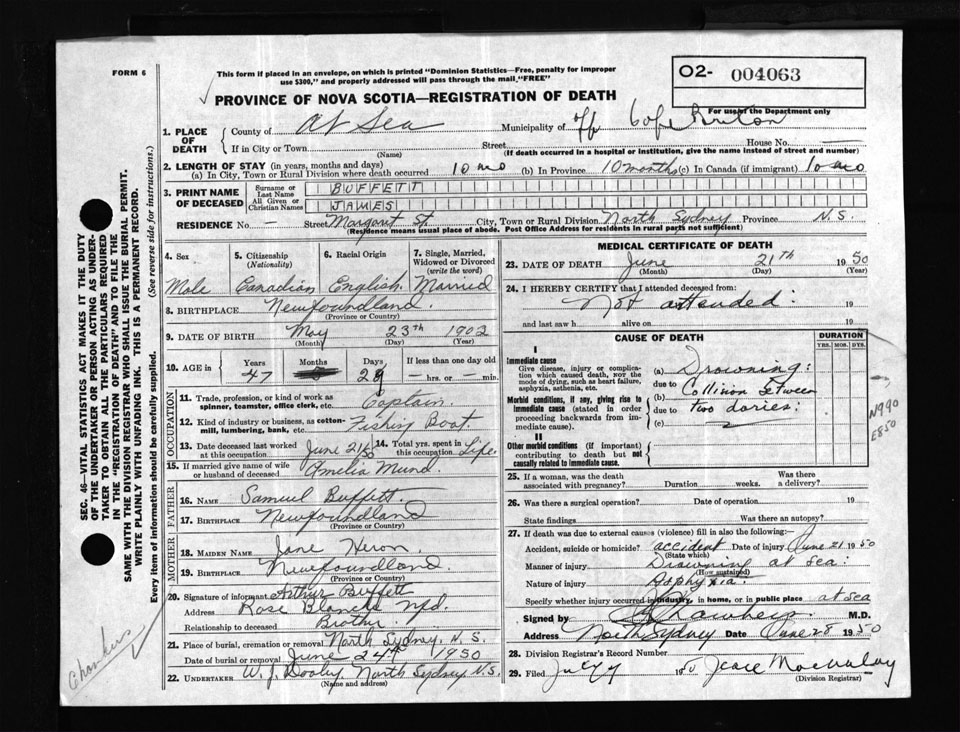 FORM 6
This form if placed in an envelope, on which is printed "Dominion Statistics—Free, penalty for improper
use $300," and properly addressed will pass through the mail, "FREE"
O2- 004063
PROVINCE OF NOVA SCOTIA—REGISTRATION OF DEATH
For use of the Department only
1. PLACE OF DEATH County of At Sea Municipality of off Cape Breton
If in City or Town (Name) Street House No. —
(If death occurred in a hospital or institution, give the name instead of street and number)
2. LENGTH OF STAY (in years, months and days)
(a) In City, Town or Rural Division where death occurred 10 mo (b) In Province 10 months (c) In Canada (if immigrant) 10 mo
3. PRINT NAME OF DECEASED
Surname or Last Name BUFFETT
All Given or Christian Names JAMES
RESIDENCE No. — Street Margaret St. City, Town or Rural Division North Sydney Province N.S.
(Residence means usual place of abode. Post Office Address for residents in rural parts not sufficient)
4. Sex Male
5. Citizenship (Nationality) Canadian
6. Racial Origin English
7. Single, Married, Widowed or Divorced (write the word) Married
8. BIRTHPLACE Newfoundland.
(Province or Country)
9. DATE OF BIRTH May 23th 1902
(Month) (Day) (Year)
10. AGE in Years 47 Months Days 29 If less than one day old
— hrs. or — min.
OCCUPATION
11. Trade, profession, or kind of work as spinner, teamster, office clerk, etc. Captain.
12. Kind of industry or business, as cotton-mill, lumbering, bank, etc. Fishing Boat.
13. Date deceased last worked at this occupation June 21/50
14. Total yrs. spent in this occupation Life.
15. If married give name of wife or husband of deceased Amelia Mund.
FATHER
16. NAME Samuel Buffett
17. BIRTHPLACE Newfoundland
(Province or Country)
MOTHER
18. MAIDEN NAME Jane Heron
19. BIRTHPLACE Newfoundland.
(Province or Country)
20. Signature of informant Arthur Buffett
Address Rose Blanche Nfd.
Relationship to deceased Brother
21. Place of burial, cremation or removal North Sydney, N.S.
Date of burial or removal June 24th 1950
22. UNDERTAKER W. J. Dooley, North Sydney, N.S.
(Name and address)
MEDICAL CERTIFICATE OF DEATH
23. DATE OF DEATH June 21th 1950
(Month) (Day) (Year)
24. I HEREBY CERTIFY that I attended deceased from:
Not attended: 19
and last saw h alive on 19
CAUSE OF DEATH
DURATION
YRS. MOS. DYS.
I
Immediate cause
Give disease, injury or complication which caused death, nor the mode of dying, such as heart failure, asphyxia, asthenia, etc.
(a) Drowning:
due to
Morbid conditions, if any, giving rise to immediate cause (stated in order proceeding backwards from immediate cause).
(b) Collision between
due to two dories.
(c)
II
Other morbid conditions (if important) contributing to death but not causally related to immediate cause.
N990
E850
25. If a woman, was the death associated with pregnancy? Duration weeks. Was there a delivery?
26. Was there a surgical operation? Date of operation 19
State findings Was there an autopsy?
27. If death was due to external causes (violence) fill in also the following:
Accident, suicide or homicide? accident Date of injury June 21 1950
(State which)
Manner of injury Drowning at sea:
(How sustained)
Nature of injury Asphyxia.
Specify whether injury occurred in industry, in home, or in public place at sea
Signed by M.D.
Address North Sydney Date June 28 1950
28. Division Registrar's Record Number
29. Filed July 7 1950
(Division Registrar)
SEC. 46—VITAL STATISTICS ACT MAKES IT THE DUTY
OF THE UNDERTAKER OR PERSON ACTING AS UNDER-
TAKER TO OBTAIN ALL THE PARTICULARS REQUIRED
IN THE "REGISTRATION OF DEATH" AND TO FILE THE
SAME WITH THE DIVISION REGISTRAR WHO SHALL ISSUE THE BURIAL PERMIT.
WRITE PLAINLY WITH UNFADING INK. THIS IS A PERMANENT RECORD.
Every item of information should be carefully supplied. (See reverse side for instructions.)